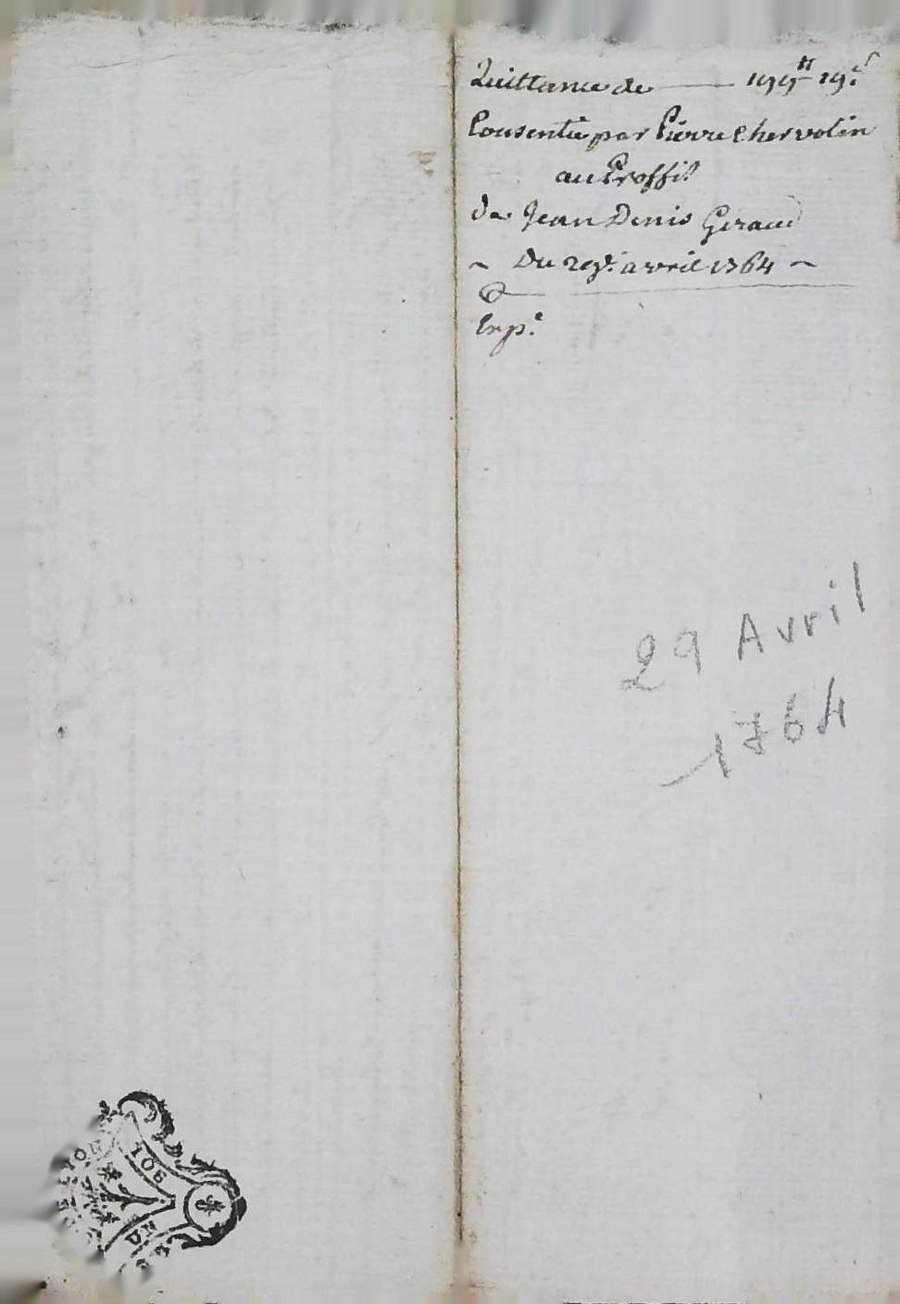 Quittance de 199ᵗᵗ 19ˢ
Consentie par Pierre Chervolin
au Proffit
de Jean Denis Giraud
Du 29ᵉ avril 1764
Exp.ᵉ
29 Avril
1764
108
DE